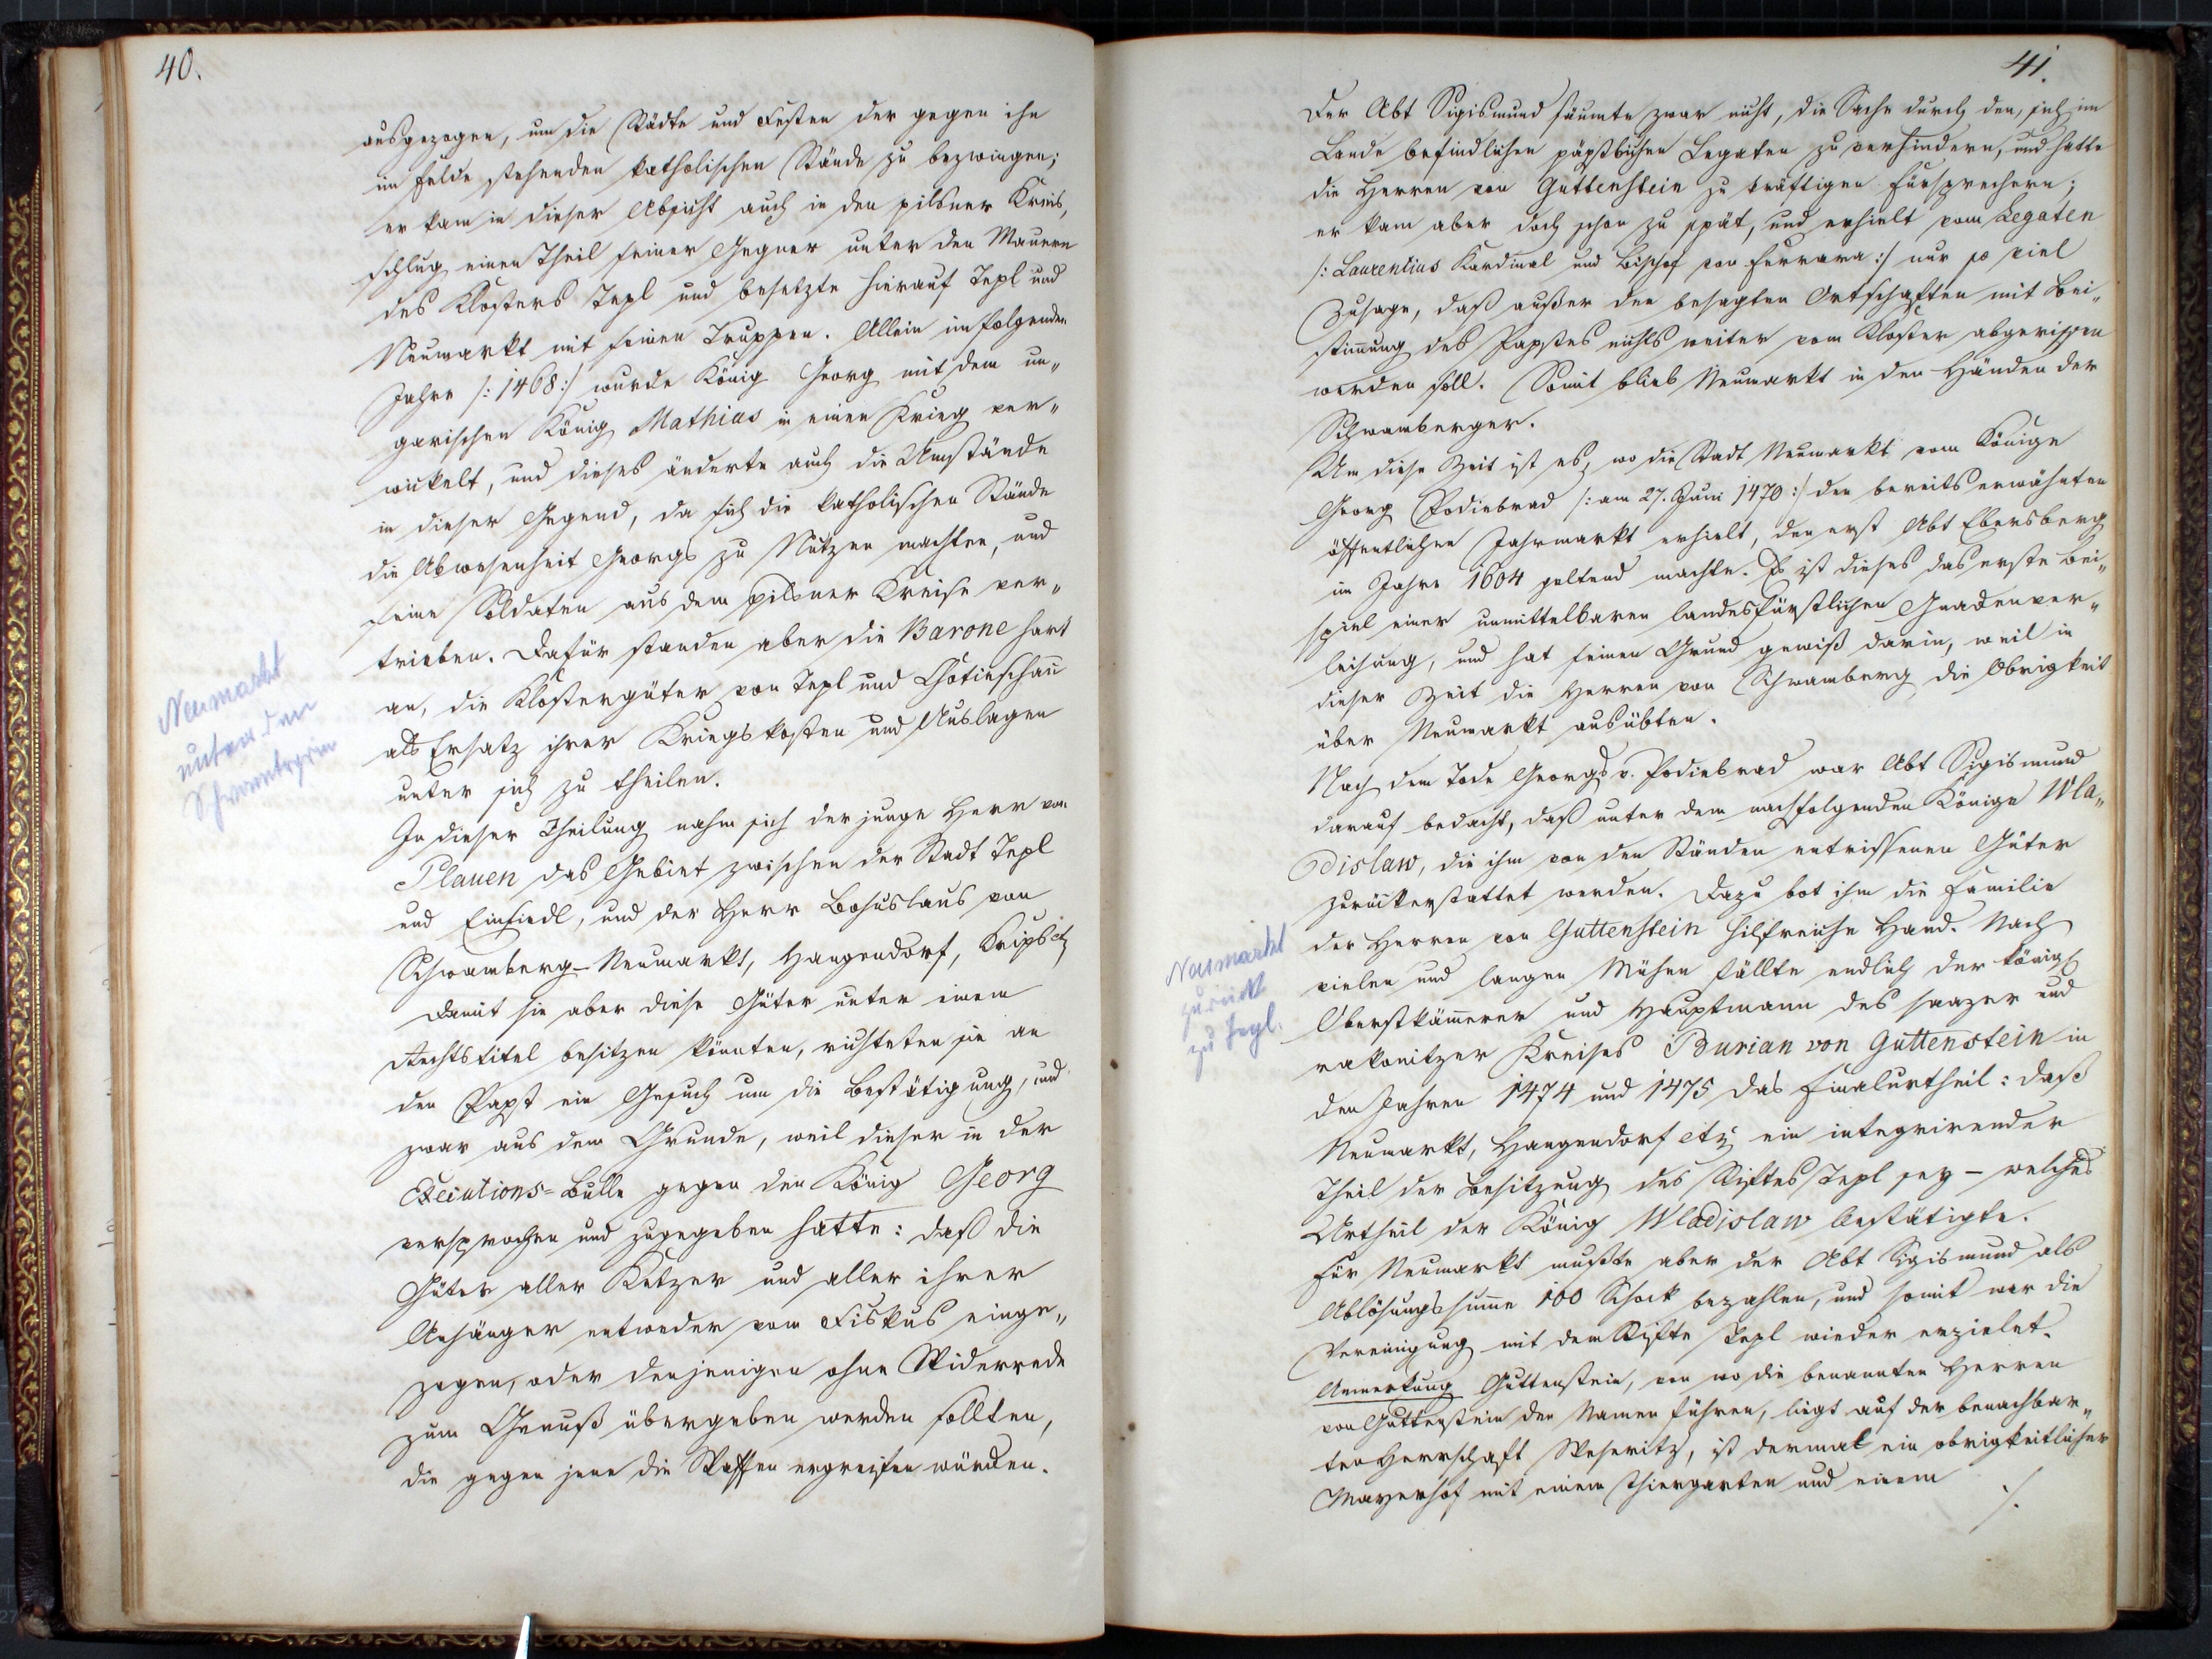 40.
ausgezogen, um die Städte und Festen der gegen ihn
im Felde stehenden katholischen Stände zu bezwingen;
er kam in dieser Absicht auch in den pilsner Kreis,
schlug einen Theil seiner Gegner unter den Mauern
des Klosters Tepl und besetzte hierauf Tepl und
Neumarkt mit seinen Truppen. Allein im folgenden
Jahre /: 1468 :/ wurde König Georg mit dem un„
garischen König Mathias in einen Krieg ver„
wickelt, und dieses änderte auch die Umstände
in dieser Gegend, da sich die katholischen Stände
die Abwesenheit Georgs zu Nutzen machten, und
seine Soldaten aus dem pilsner Kreise ver„
trieben. Dafür standen aber die Barone hart
an, die Klostergüter von Tepl und Chotieschau
als Ersatz ihrer Kriegskosten und Auslagen
unter sich zu theilen.
Neumarkt
unter den
Schwambergern
In dieser Theilung nahm sich der junge Herr von
Plauen das Gebiet zwischen der Stadt Tepl
und Einsiedl, und der Herr Bohuslaus von
Schwamberg – Neumarkt, Hangendorf, Kripsetz
Damit sie aber diese Güter unter einem
Rechtstitel besitzen könnten, richteten sie an
den Papst ein Gesuch um die Bestätigung, und
zwar aus dem Grunde, weil dieser in der
Executions=Bulle gegen den König Georg
versprochen und zugegeben hatte: daß die
Güter aller Ketzer und aller ihrer
Anhänger entweder vom Fiskus einge„
zogen, oder denjenigen ohne Widerrede
zum Genuß übergeben werden sollten,
die gegen jene die Waffen ergreifen würden.
41.
Der Abt Sigismund säumte zwar nicht, die Sache durch den, sich im
Lande befindlichen päpstlichen Legaten zu verhindern, und hatte
die Herren von Guttenstein zu kräftigen Fürsprechern;
er kam aber doch schon zu spät, und erhielt vom Legaten
/: Laurentius Kardinal und Bischof von Ferrara :/ nur so viel
Zusage, daß außer den besagten Ortschaften mit Bei„
stimmung des Papstes nichts weiter vom Kloster abgerissen
werden soll. Somit blieb Neumarkt in den Händen der
Schwamberger.
Um diese Zeit ist es, wo die Stadt Neumarkt vom Könige
Georg Podiebrad /: am 27. Juni 1470 :/ den bereits erwähnten
öffentlichen Jahrmarkt erhielt, den erst Abt Ebersberg
im Jahre 1604 geltend machte. Es ist dieses das erste Bei„
spiel einer unmittelbaren landesfürstlichen Gnadenver„
leihung, und hat seinen Grund gewiß darin, weil in
dieser Zeit die Herren von Schwamberg die Obrigkeit
über Neumarkt ausübten.
Nach dem Tode Georgs v. Podiebrad war Abt Sigismund
darauf bedacht, daß unter dem nachfolgenden Könige Wla„
dislaw, die ihm von den Ständen entrissenen Güter
zurückerstattet werden. Dazu bot ihm die Familie
der Herren von Guttenstein hilfreiche Hand. Nach
vielen und langen Mühen fällte endlich der königl
Oberstkämerer und Hauptmann des saazer und
rakonitzer Kreises Burian von Guttenstein in
den Jahren 1474 und 1475 das Finalurtheil: daß
Neumarkt, Hangendorf etz ein integrirender
Theil der Besitzung des Stiftes Tepl sey – welches
Urtheil der König Wladislaw bestätigte.
Neumarkt
zurück
zu Tepl.
Für Neumarkt mußte aber der Abt Sigismund als
Ablösungssumme 100 Schock bezahlen, und somit war die
Vereinigung mit dem Stifte Tepl wieder erzielet.
Anmerkung Guttenstein, von wo die benannten Herren
von Guttenstein den Namen führen, liegt auf der benachbar„
ten Herrschaft Weseritz, ist dermal ein obrigkeitlicher
Mayerhof mit einem Thiergarten und einem
./.